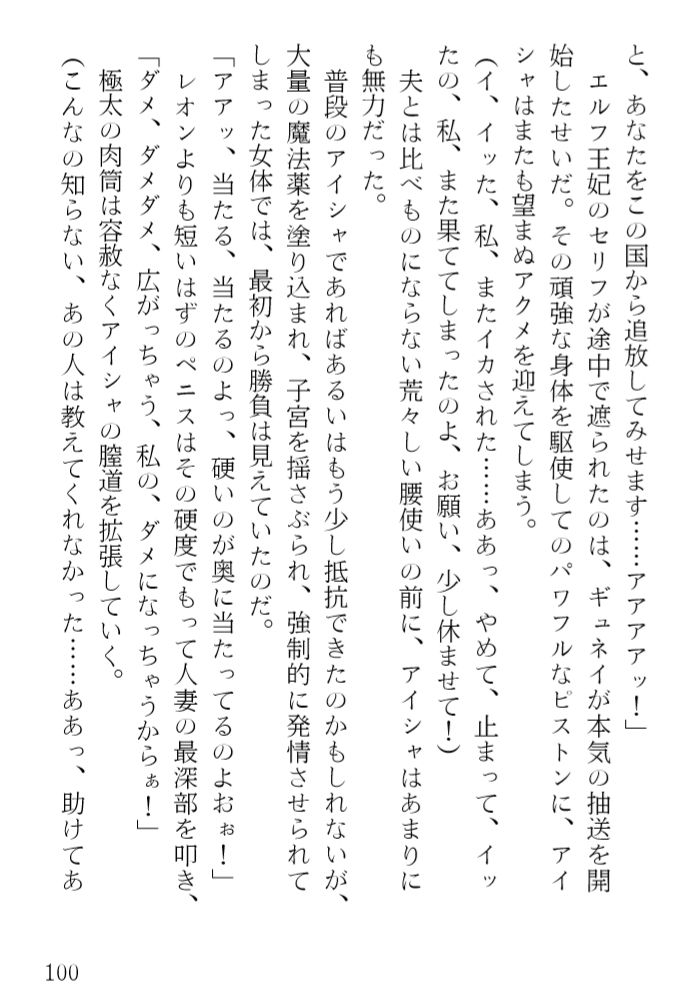 と、あなたをこの国から追放してみせます……アアアアッ！」
　エルフ王妃のセリフが途中で遮られたのは、ギュネイが本気の抽送を開
始したせいだ。その頑強な身体を駆使してのパワフルなピストンに、アイ
シャはまたも望まぬアクメを迎えてしまう。
(イ、イッた、私、またイカされた……ああっ、やめて、止まって、イッ
たの、私、また果ててしまったのよ、お願い、少し休ませて！)
　夫とは比べものにならない荒々しい腰使いの前に、アイシャはあまりに
も無力だった。
　普段のアイシャであればあるいはもう少し抵抗できたのかもしれないが、
大量の魔法薬を塗り込まれ、子宮を揺さぶられ、強制的に発情させられて
しまった女体では、最初から勝負は見えていたのだ。
「アアッ、当たる、当たるのよっ、硬いのが奥に当たってるのよおぉ！」
　レオンよりも短いはずのペニスはその硬度でもって人妻の最深部を叩き、
「ダメ、ダメダメ、広がっちゃう、私の、ダメになっちゃうからぁ！」
　極太の肉筒は容赦なくアイシャの膣道を拡張していく。
(こんなの知らない、あの人は教えてくれなかった……ああっ、助けてあ
100